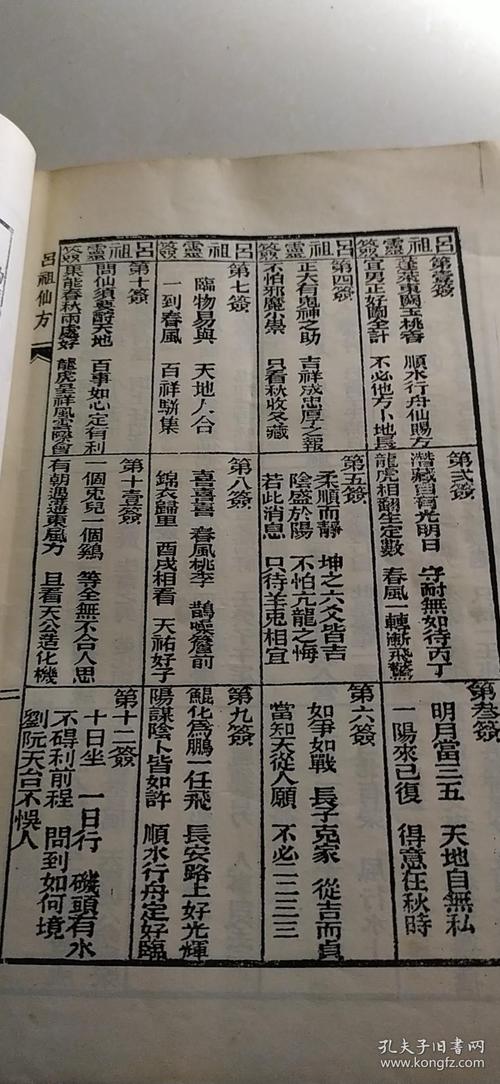 呂祖靈簽
第壹簽
蓬萊東闕玉桃香 順水行舟仙賜方
宜男正好圖全計 不必他方卜地長
第弍簽
潛藏自有光明日 守耐無如待丙丁
龍虎相翻生定數 春風一轉漸飛驚
第叁簽
明月當三五 天地自無私
一陽來已復 得意在秋時
呂祖靈簽
第四簽
正大有鬼神之助 吉祥成忠厚之報
不怕邪魔小祟 只看秋收冬藏
第五簽
柔順而靜 坤之六爻皆吉
陰盛於陽 不怕亢龍之悔
若此消息 只待羊兎相宜
第六簽
如爭如戰 長子克家 從吉而貞
當知天從人願 不必一二三三
呂祖靈簽
第七簽
臨物易與 天地人合
一到春風 百祥駢集
第八簽
喜喜喜 春風桃李 鵲噪簷前
錦衣歸里 酉戌相看 天祐好子
第九簽
鯤化為鵬一任飛 長安路上好光輝
陽謀陰卜皆如許 順水行舟定好臨
呂祖靈簽
第十簽
問仙須要謝天地 百事如心定有利
果能春秋兩處好 龍虎呈祥風雲際會
第十壹簽
一個兎兒一個鷄 等全無不合人思
有朝遇這東風力 且看天公造化機
第十二簽
十日坐 一日行 磯頭有水
不碍利前程 問到如何境
劉阮天台不悞人
呂祖仙方
孔夫子旧书网
www.kongfz.com